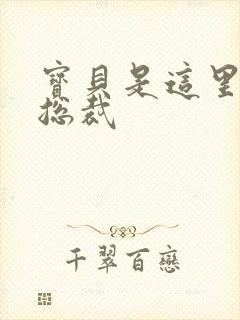 寶貝是這里
总裁
千翠百戀